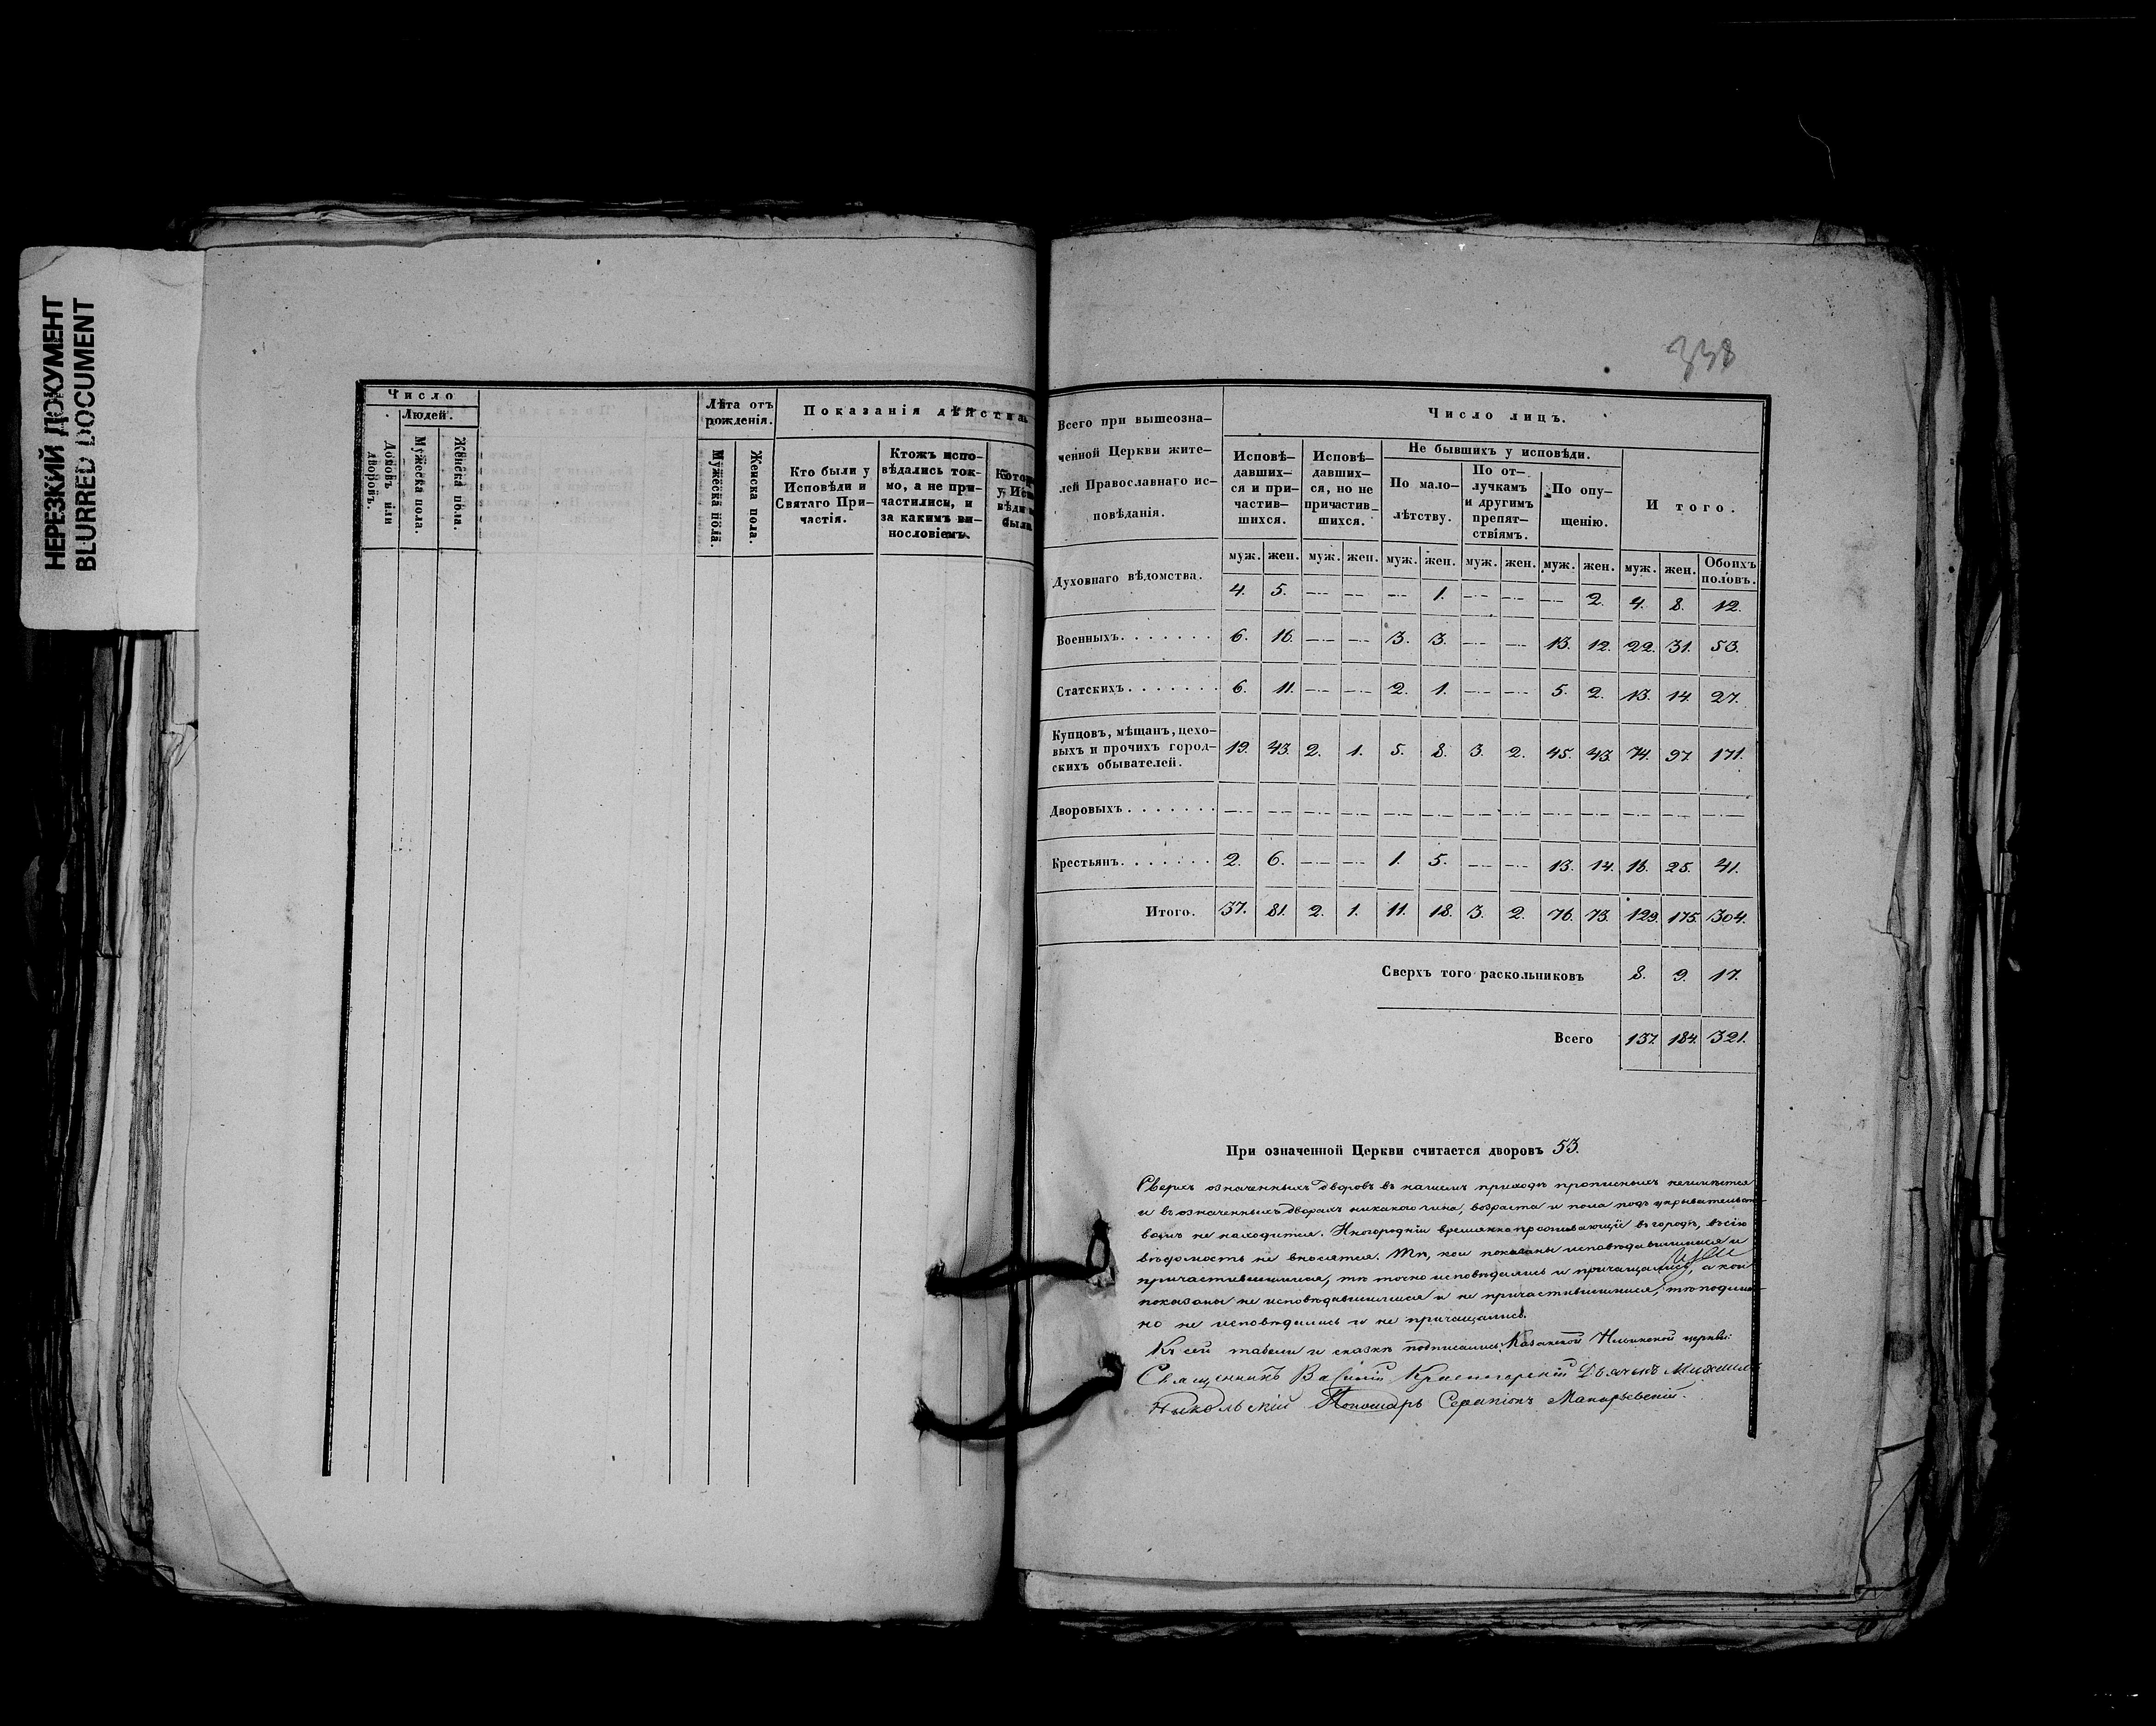 НЕРЕЗКИЙ ДОКУМЕНТ
BLURRED DOCUMENT
Число
Людей.
Домовъ или дворовъ.
Мужеска пола.
Женска пола.
Лѣта отъ рожденія.
Мужеска пола.
Женска пола.
Показанія дѣйства
Кто были у Исповѣди и Святаго Причастія.
Ктожъ исповѣдались токмо, а не причастились, и за какимъ винословіемъ.
338
Всего при вышеозна-
ченной Церкви жите-
лей Православнаго ис-
повѣданія.
Число лицъ.
Исповѣ-
давших-
ся и при-
частив-
шихся.
Исповѣ-
давших-
ся, но не
причастив-
шихся.
Не бывшихъ у исповѣди.
По мало-
лѣтству.
По от-
лучкамъ
и другимъ
препят-
ствіямъ.
По опу-
щенію.
И того.
муж. жен. муж. жен. муж. жен. муж. жен. муж. жен. муж. жен. Обоихъ половъ.
Духовнаго вѣдомства. 4. 5. — — — 1. — — — 2. 4. 8. 12.
Военныхъ. 6. 16. — — 3. 3. — — 13. 12. 22. 31. 53.
Статскихъ. 6. 11. — — 2. 1. — — 5. 2. 13. 14. 27.
Купцовъ, мѣщанъ, цехо-
выхъ и прочихъ город-
скихъ обывателей. 19. 43. 2. 1. 5. 8. 3. 2. 45. 43. 74. 97. 171.
Дворовыхъ. — — — — — — — — — — — — —
Крестьянъ. 2. 6. — — 1. 5. — — 13. 14. 16. 25. 41.
Итого. 37. 81. 2. 1. 11. 18. 3. 2. 76. 73. 129. 175. 304.
Сверхъ того раскольниковъ 8. 9. 17.
Всего 137. 184. 321.
При означенной Церкви считается дворовъ 53.
Сверхъ означенныхъ дворовъ въ нашемъ приходѣ прописныхъ неимѣется
и въ означенныхъ дворахъ никакого чина, возраста и пола подъ укрывательст-
вомъ не находится. Иногородніи временно проживающіи въ городѣ, въ сію
вѣдомость не вносятся. Тѣ, кои показаны исповѣдавшимися и
причастившимися, тѣ точно исповѣдались и причащались, а кои
показаны не исповѣдавшимися и не причастившимися, тѣ подлин-
но не исповѣдались и не причащались.
Къ сей табели и сказкѣ подписались Казанской Ильинской церкви:
Священникъ Василій Красногорскій Дьячекъ Михаилъ
Никольскій Пономарь Серапіонъ Макарьевскій.